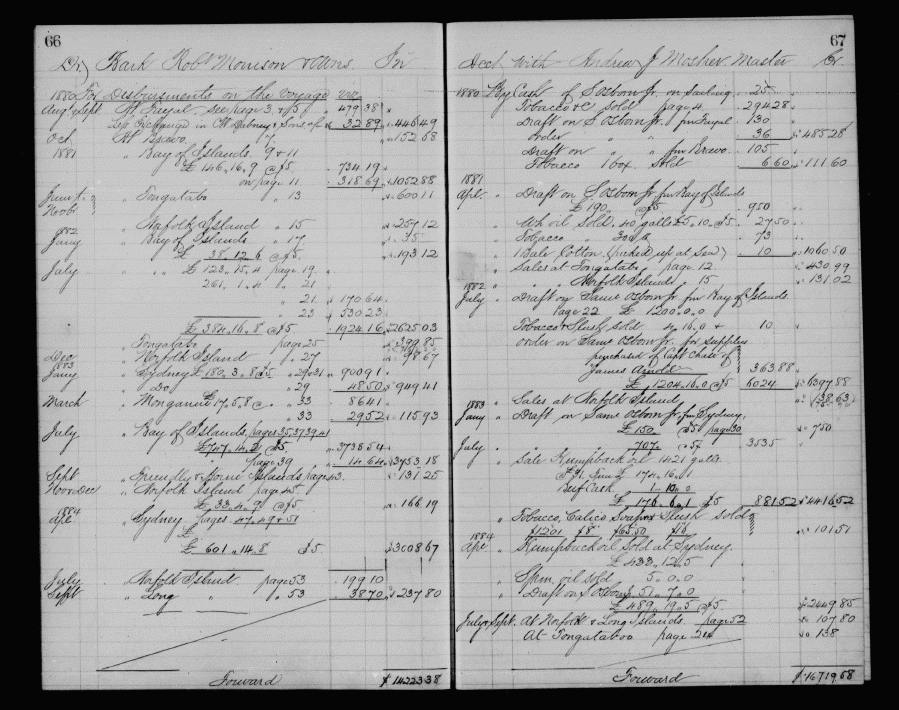 66
Dr) Bark Robt Morrison & Owns In
1880 For Disbursments on the voyage viz
Augt Sept At Fayal see page 3 & 5 479 38
Less Exchange in & Sons 32 89 446 49
Oct At Bravo " 7 152 68
1881 " Bay of Islands 9 & 11
£ 146.16.9 @ $5 734 19
on page 11 318 69 1052 88
" Tongatabo " 13 600 11
Novb
1882 " Norfolk Island " 15 257 12
Jany " Bay of Islands " 17 35
£ 38.12.6 @ $5 193 12
July " " £ 123.15.4 page 19
261.1.4 " 21
" 21 170 64
" 23 530 23
£ 384.16.8 @ $5 1924 16 2625 03
" Tongatabo page 25 399 85
Dec " Norfolk Island " 27 98 67
1883
Jany " Sydney £ 180.3.8 @ $5 " 29 & 31 900 91
" Do " 29 48 50 949 41
March " Monganui £ 17.5.8 @ " 33 86 41
" 33 29 52 115 93
July " Bay of Islands, pages 35, 37, 39, 41
£ 747.14.2 @ $5 3738 54
" page 39 14 64 3753 18
Sept " Friendly & Home Islands page 43. 131 25
Nov & Dec " Norfolk Island page 45
£ 33.4.9 @ $5 166 19
1884
Apl " Sydney pages 47, 49 & 51
£ 601.14.8 $5 3008 67
July " Norfolk Island page 53 199 10
Sept " Long " " 53 38 70 237 80
Forward $ 14223 38
67
Acct with Andrew J Mosher Master Cr
1880 By Cash of S Osborn Jr, on sailing 25
" Tobacco &c Sold page 4 294 28
" Draft on S Osborn Jr fm Fayal 130
" Order " " 36 485 28
" Draft on " " fm Bravo 105
" Tobacco 1 box Sold 6 60 111 60
1881
Apl " Draft on S Osborn Jr fm Bay of Islands
£ 190 @ $5 950
" Wh oil Sold 40 galls £5.10 @ $5 27 50
" Tobacco 300 lb 73
" 1 Bale Cotton (picked up at Sea) 10 1060 50
" Sales at Tongatabo page 12 430 99
1882 " " Norfolk Island " 15 131 02
July " Draft on Same Osborn Jr fm Bay of Islands
Page 22 £ 1200.0.0
Tobacco & Slush sold 4.16.0 & 10
Order on Same Osborn Jr for supplies
purchased of Capt Chase of
James Arnold 363 88
£ 1204.16.0 @ $5 6024 6397 88
1883 " Sales at Norfolk Island 138 63
Jany " Draft on Same Osborn Jr, fm Sydney,
£ 150 @ $5 page 30 750
July " " " 707 @ $5 3535
" Sale Humpback oil 1421 galls
£ 174.16.1
Beef Cask 1.10.0
£ 176.6.1 $5 881 52 4416 52
" Tobacco, Calico Soap & Slush sold
$1201 $8 $65.50 $16 101 51
1884
Apl " Humpback oil sold at Sydney
£ 433.12.5
" Spm. oil sold 5.0.0
" Draft on S Osborn Jr 51.7.0
£ 489.19.5 @ $5 2449 85
July & Sept. At Norfolk & Long Islands page 52 107 80
At Tongataboo page 24 138
Forward $ 16719 58